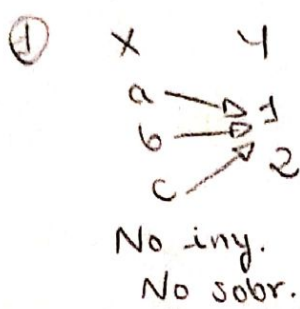 ① X Y
a 1
b
c 2
No iny.
No sobr.